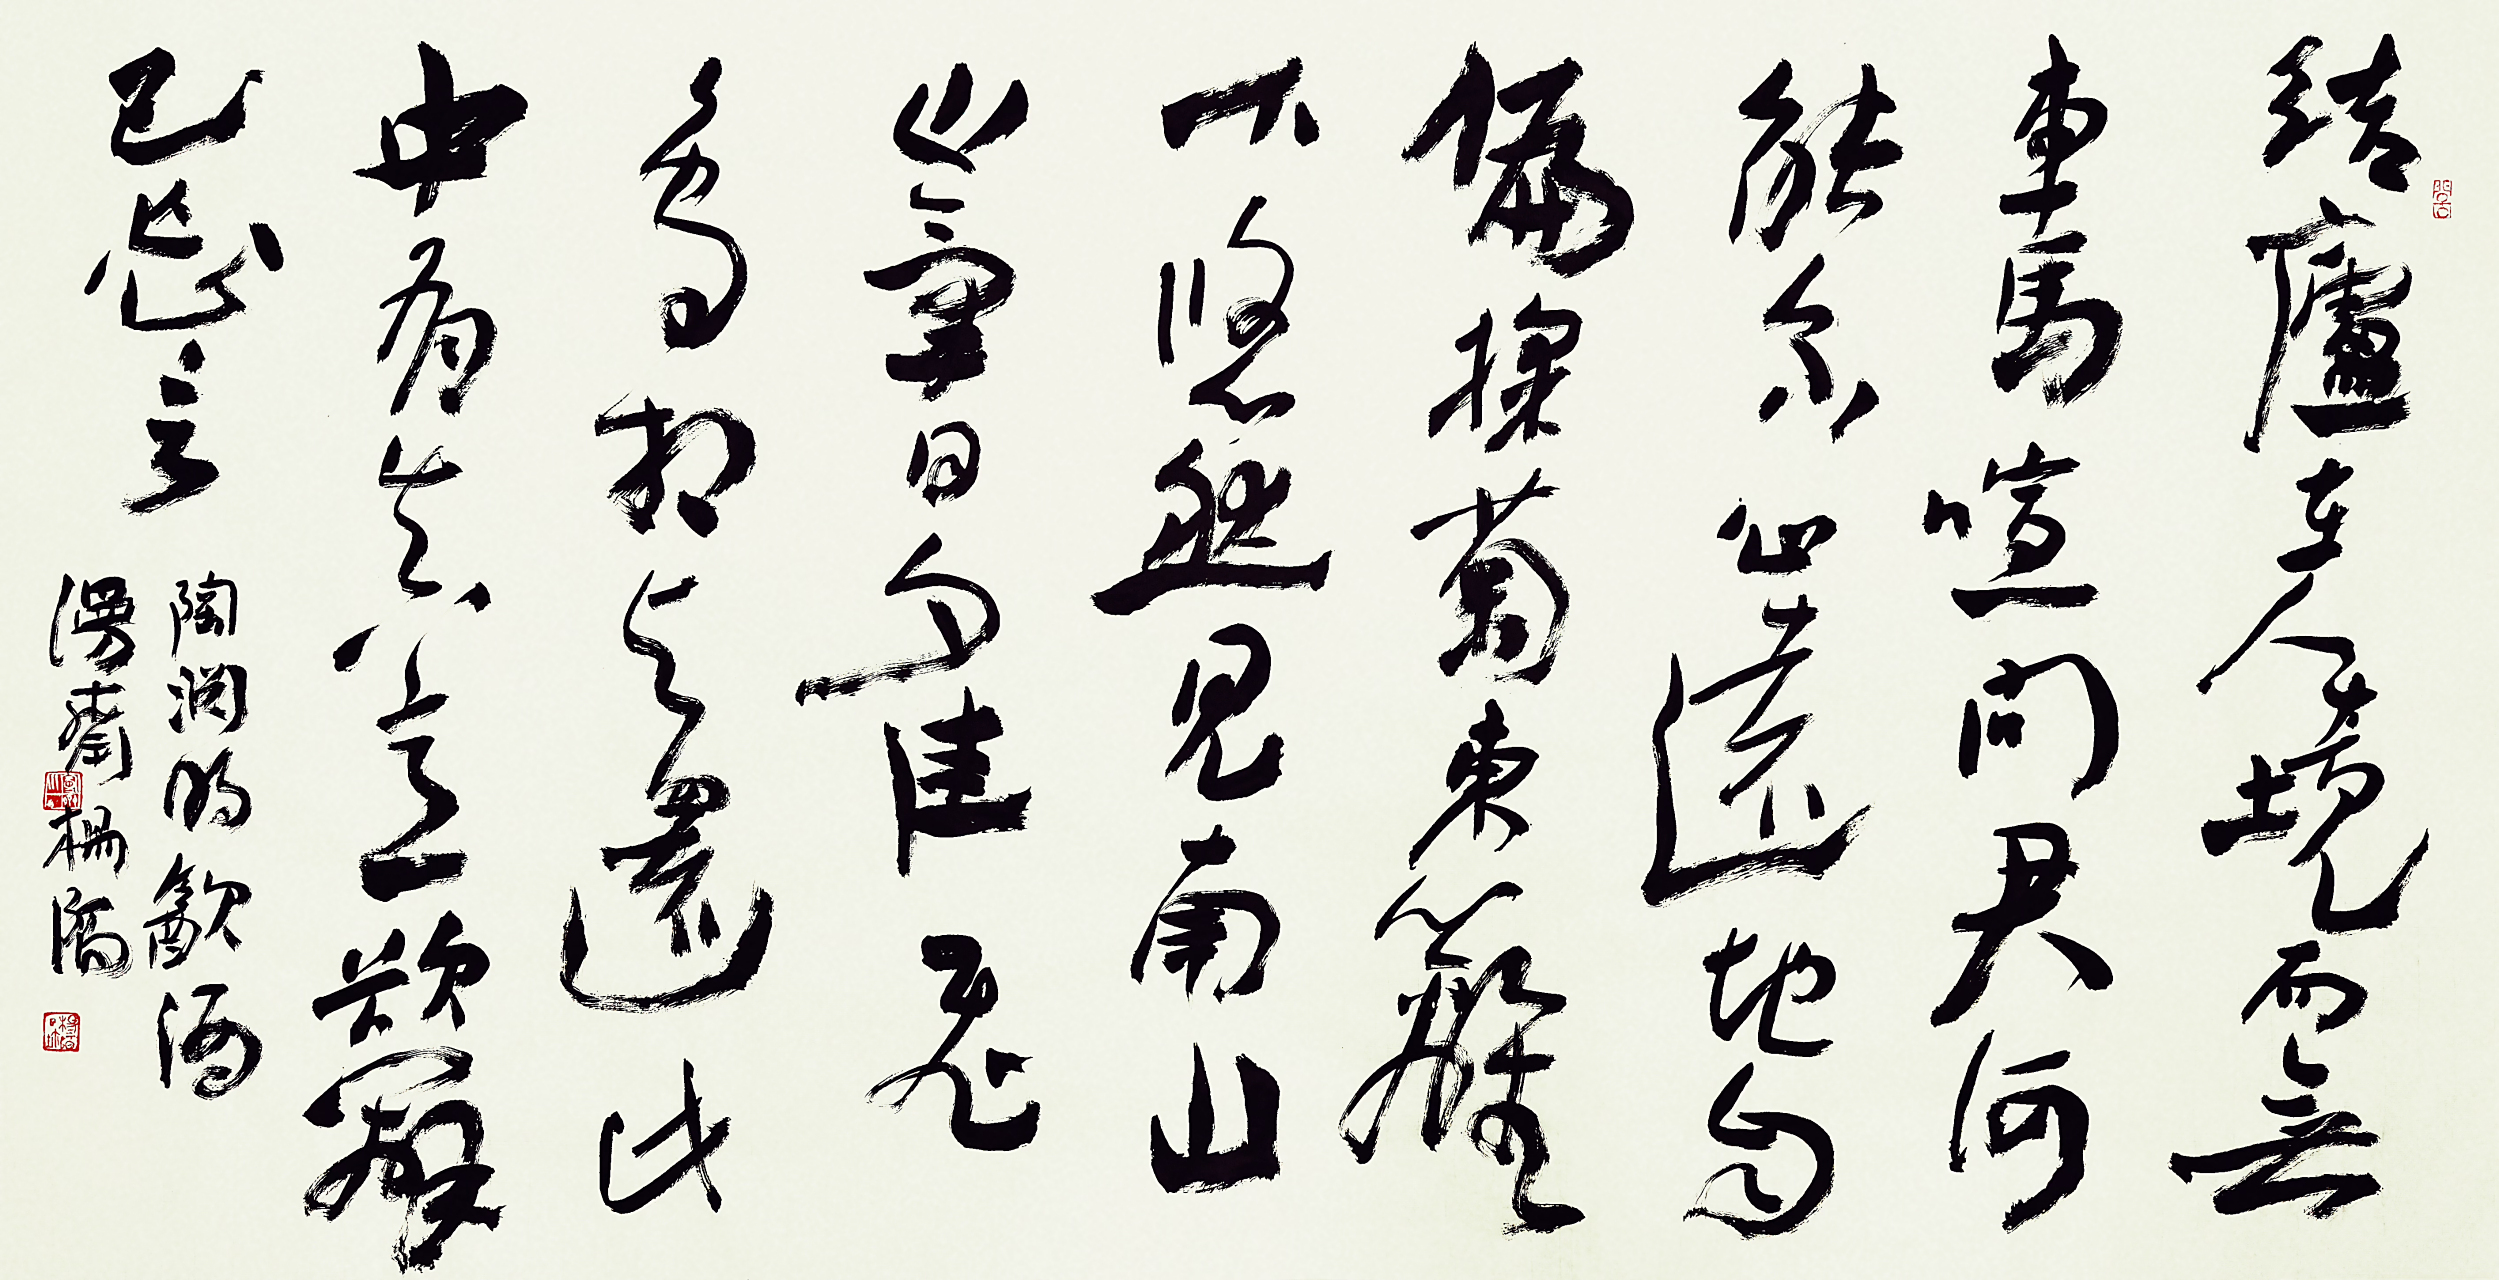 結廬在人境而無
車馬喧問君何
能尔心遠地自
偏採菊東籬
下悠然見南山
山氣日夕佳飛
鳥相與還此
中有真意欲辯
已忘言
陶淵明飲酒
漫齋